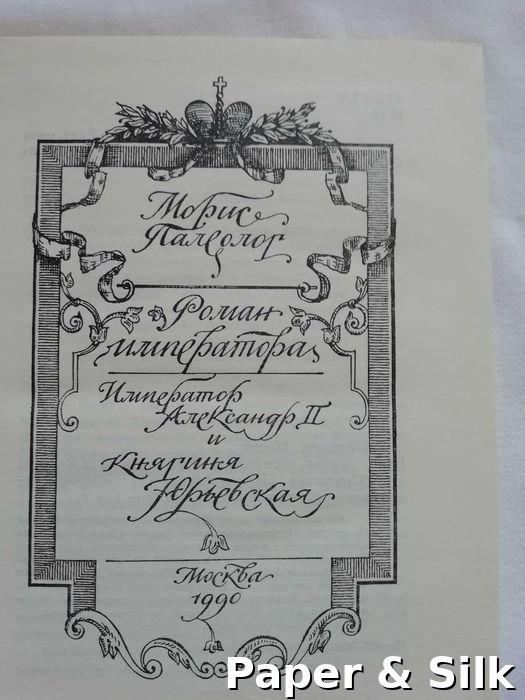 Морис
Палеолог
Роман
императора
Император
Александр II
и
Княгиня
Юрьевская
Москва
1990
Paper & Silk